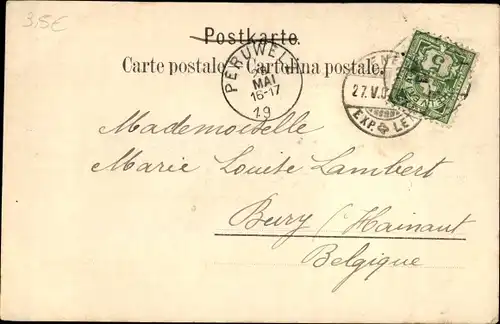 3,5€
Postkarte.
Carte postale. Cartolina postale.
PERUWELZ
MAI
16-17
19
27.V.0
EXP. LE
5
Mademoiselle
Marie Louise Lambert
Bury (Hainaut
Belgique